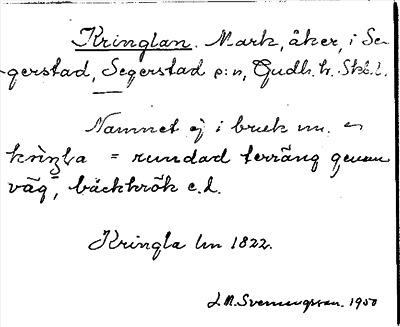 Kringlan. Mark, åker, i Se-
gerstad, Segerstad s:n, Gudh. h. Skb. l.
Namnet ej i bruk nu. en
kringla = rundad terräng genom
väg, bäckkrök e.d.
Kringla lm 1822.
1950